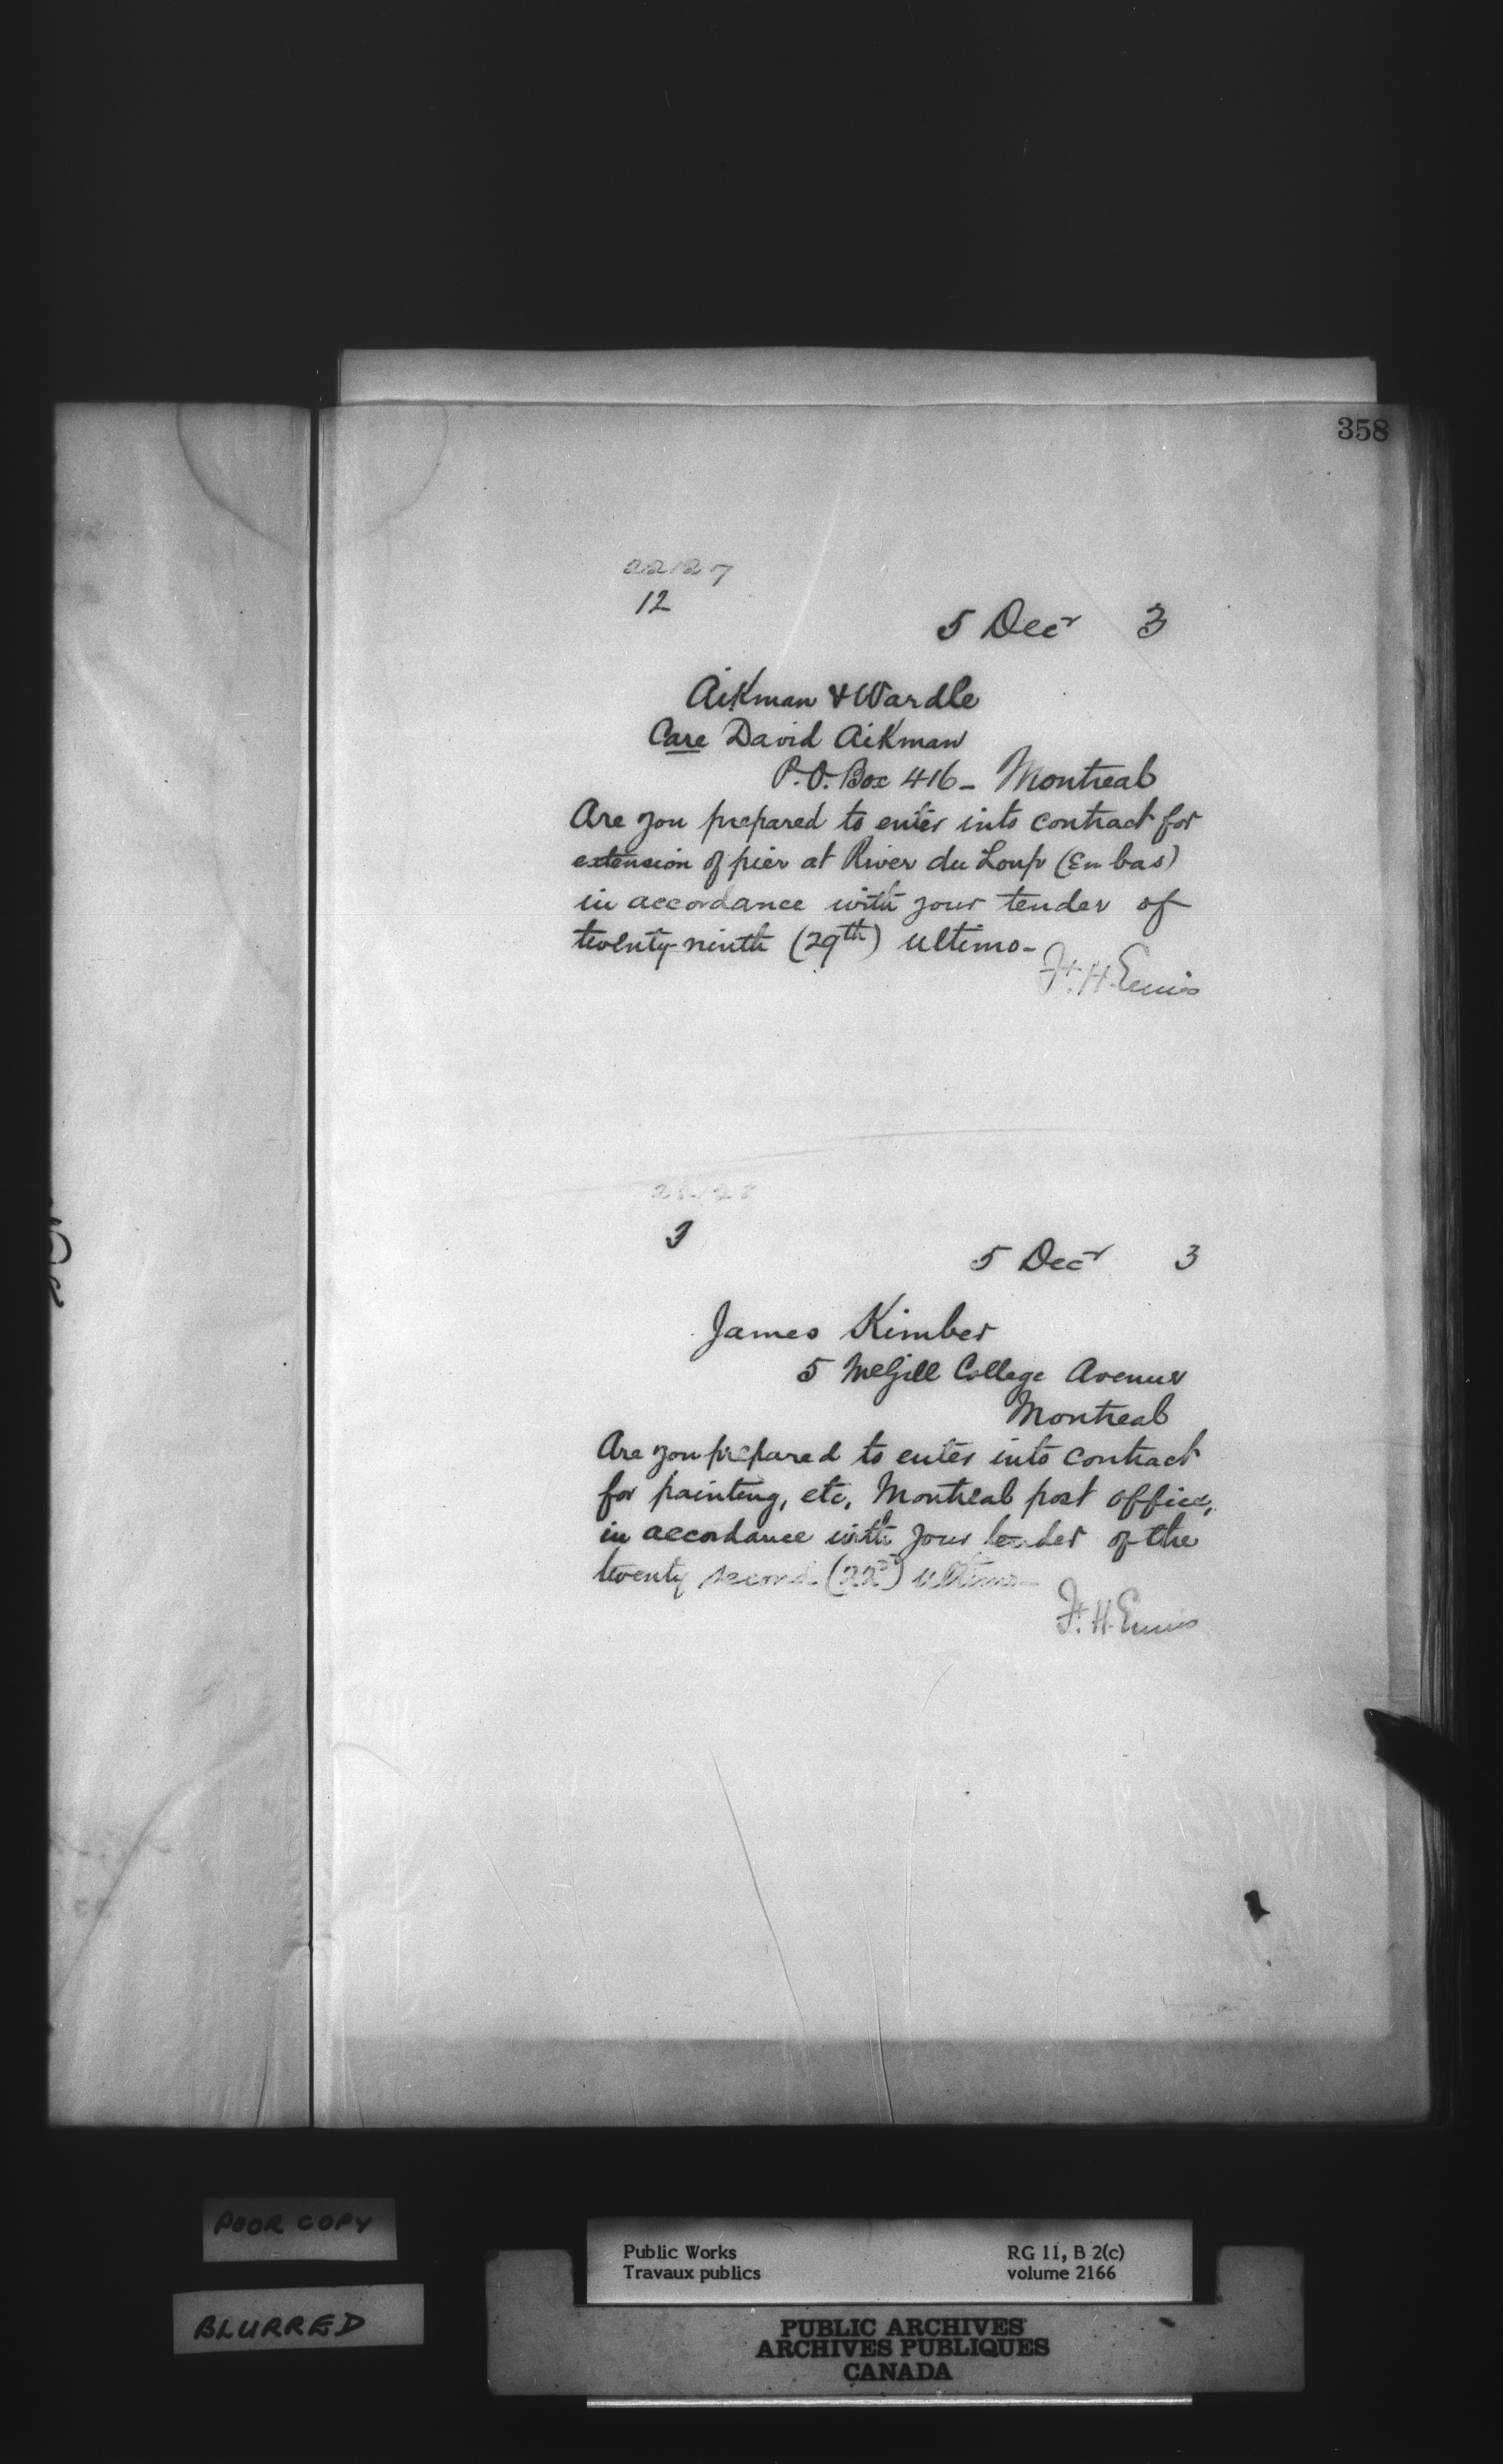 358
22127
12
5 Decr 3
Aikman & Wardle
Care David Aikman
P.O. Box 416 - Montreal
Are you prepared to enter into contract for
extension of pier at River du Loup (En bas)
in accordance with your tender of
twenty-ninth (29th) ultimo -
F. H. Ennis
22128
3
5 Decr 3
James Kimber
5 McGill College Avenue
Montreal
Are you prepared to enter into contract
for painting, etc, Montreal post office,
in accordance with your tender of the
twenty second (22d) ultimo -
F. H. Ennis
POOR COPY
BLURRED
Public Works RG 11, B 2(c)
Travaux publics volume 2166
PUBLIC ARCHIVES
ARCHIVES PUBLIQUES
CANADA